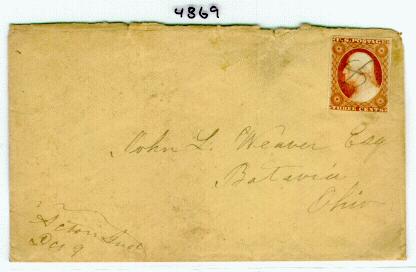 4869
U.S. POSTAGE
THREE CENTS
John L. Weaver Esq
Batavia
Ohio
Acton Ind
Dec 9